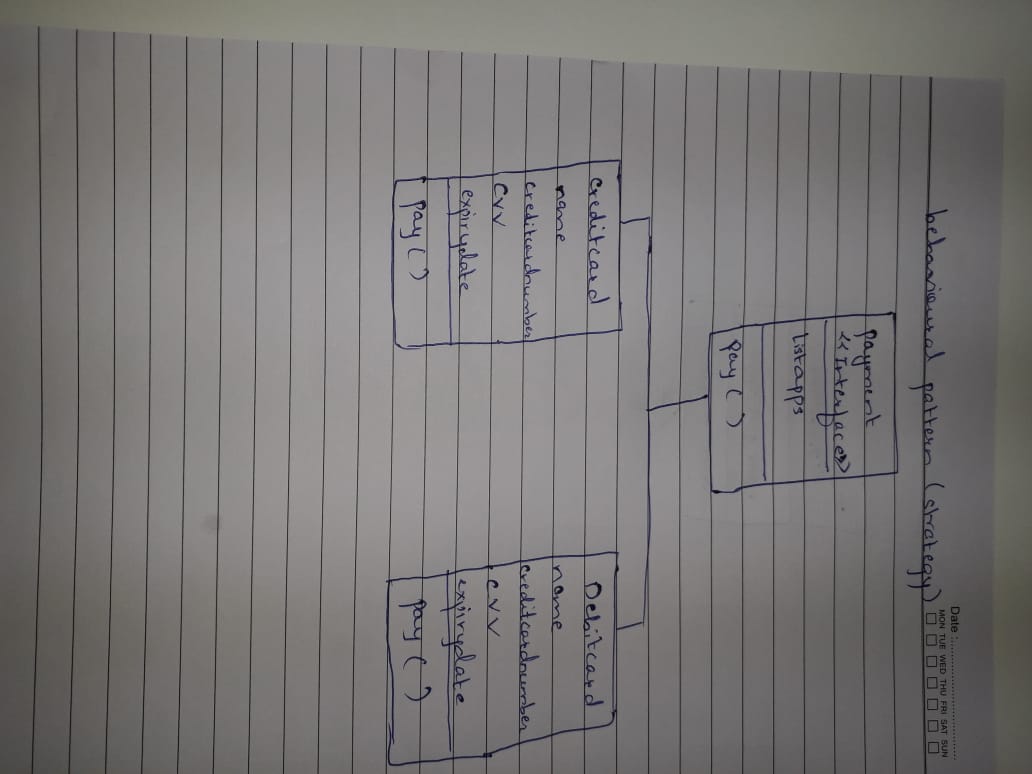 Date :
MON TUE WED THU FRI SAT SUN
behavioural pattern (strategy)
payment
<<Interface>>
Listapps
pay ( )
creditcard
name
creditcardnumber
cvv
expirydate
pay ( )
Debitcard
name
creditcardnumber
cvv
expirydate
pay ( )